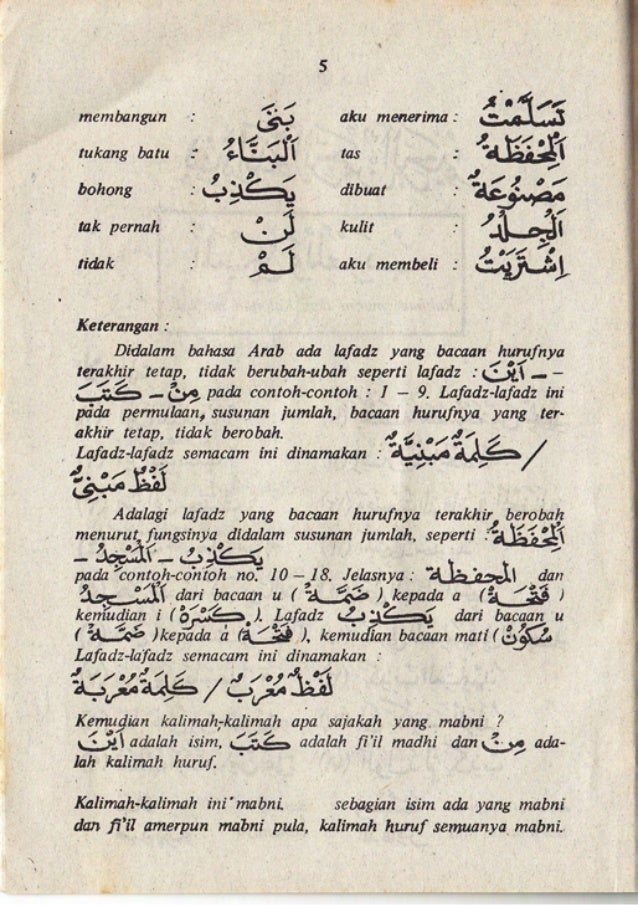 5
membangun : بَنَى aku menerima : تَسَلَّمْتُ
tukang batu : اَلْبَنَّاءُ tas : اَلْمِحْفَظَةُ
bohong : يَكْذِبُ dibuat : مَصْنُوْعَةٌ
tak pernah : لَنْ kulit : اَلْجِلْدُ
tidak : لَمْ aku membeli : اِشْتَرَيْتُ
Keterangan :
Didalam bahasa Arab ada lafadz yang bacaan hurufnya
terakhir tetap, tidak berubah-ubah seperti lafadz : اَيْنَ – –
مِنْ – كَتَبَ pada contoh-contoh : 1 – 9. Lafadz-lafadz ini
pada permulaan, susunan jumlah, bacaan hurufnya yang ter-
akhir tetap, tidak berobah.
Lafadz-lafadz semacam ini dinamakan : كَلِمَةٌ مَبْنِيَّةٌ /
لَفْظٌ مَبْنِيٌّ
Adalagi lafadz yang bacaan hurufnya terakhir berobah
menurut fungsinya didalam susunan jumlah, seperti : اَلْمِحْفَظَةُ
– يَكْذِبُ – اَلْمَسْجِدُ
pada contoh-contoh no. 10 – 18. Jelasnya : المحفظة dan
اَلْمَسْجِدُ dari bacaan u ( ضَمَّةٌ ) kepada a ( فَتْحَةٌ )
kemudian i ( كَسْرَةٌ ). Lafadz يَكْذِبُ dari bacaan u
( ضَمَّةٌ ) kepada a ( فَتْحَةٌ ), kemudian bacaan mati ( سُكُوْنٌ )
Lafadz-lafadz semacam ini dinamakan :
لَفْظٌ مُعْرَبٌ / كَلِمَةٌ مُعْرَبَةٌ
Kemudian kalimah-kalimah apa sajakah yang mabni ?
اَيْنَ adalah isim, كَتَبَ adalah fi'il madhi dan مِنْ ada-
lah kalimah huruf.
Kalimah-kalimah ini mabni. sebagian isim ada yang mabni
dan fi'il amerpun mabni pula, kalimah huruf semuanya mabni.